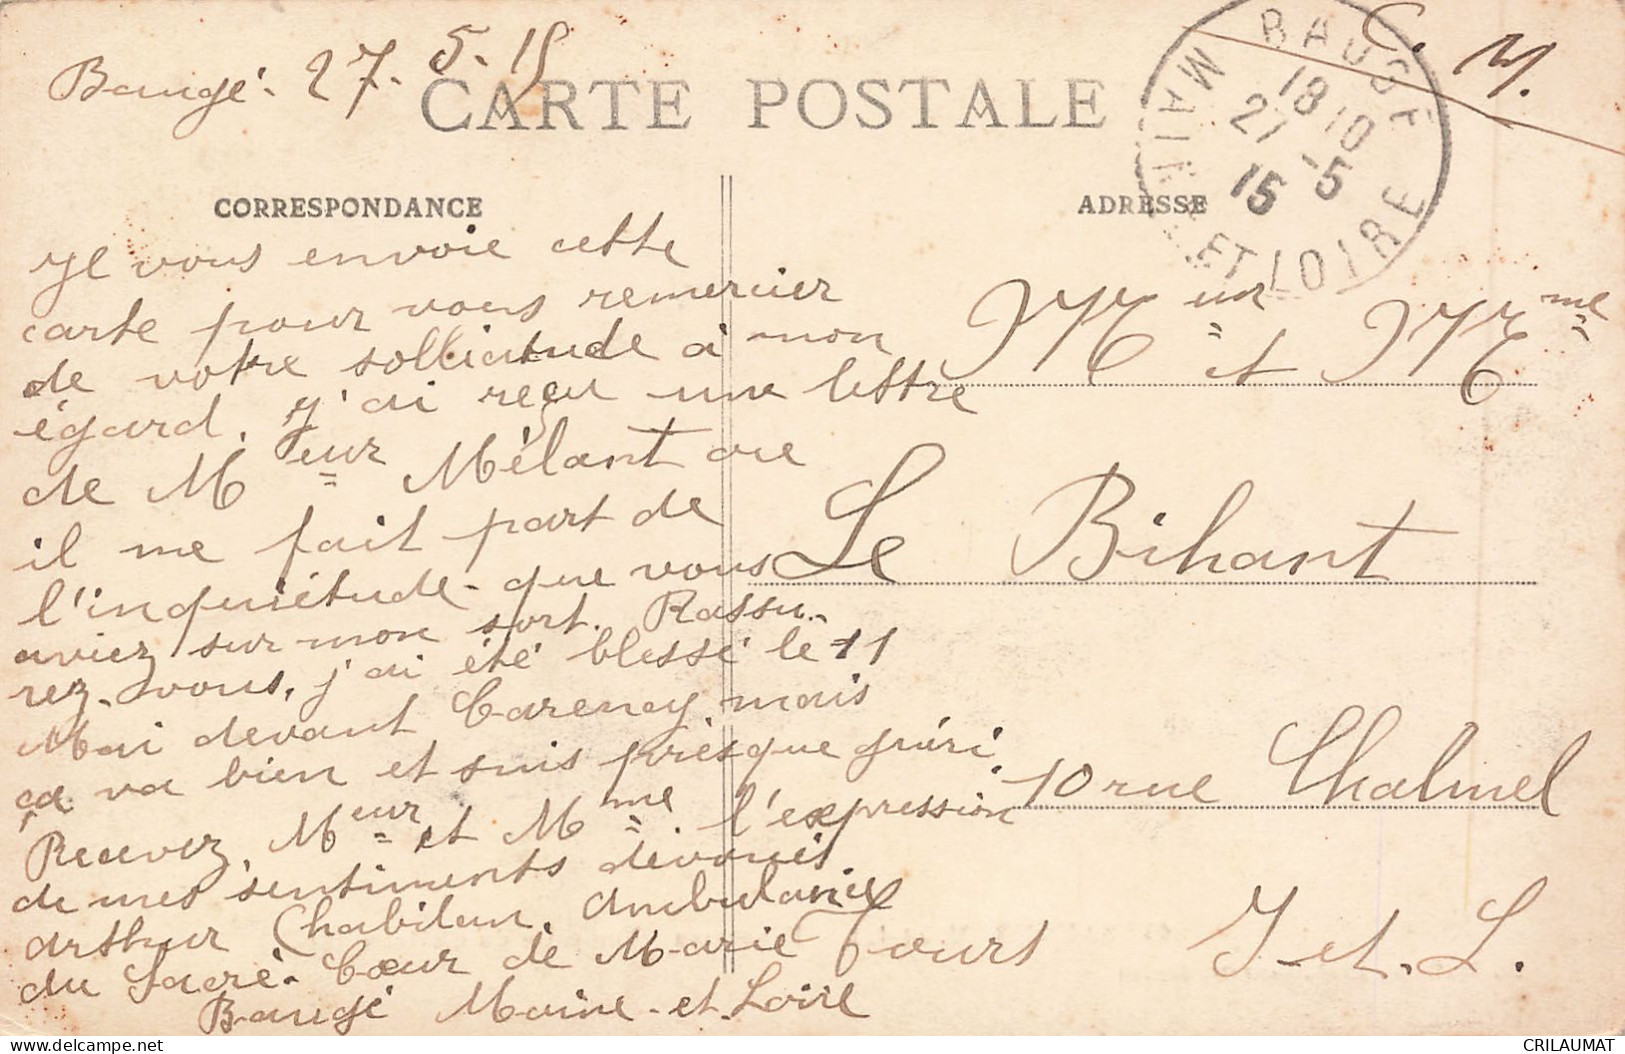 Baugé. 27. 5. 15
C. M.
CARTE POSTALE
BAUGÉ
18 10
27 -5
15
MAINE-ET-LOIRE
CORRESPONDANCE
ADRESSE
Je vous envoie cette
carte pour vous remercier
de votre sollicitude à mon
égard. J'ai reçu une lettre
de Meur Mélant ou
il me fait part de
l'inquiétude que vous
aviez sur mon sort. Rassu-
rez-vous, j'ai été blessé le 11
Mai devant Carency mais
ça va bien et suis presque guéri.
Recevez, Meur et Mme l'expression
de mes sentiments dévoués
Arthur Chabilan. Ambulance
du Sacré-Cœur de Marie
Baugé Maine-et-Loire
Mur et Mme
Le Bihant
10 rue Chalmel
Tours I-et-L.
CRILAUMAT